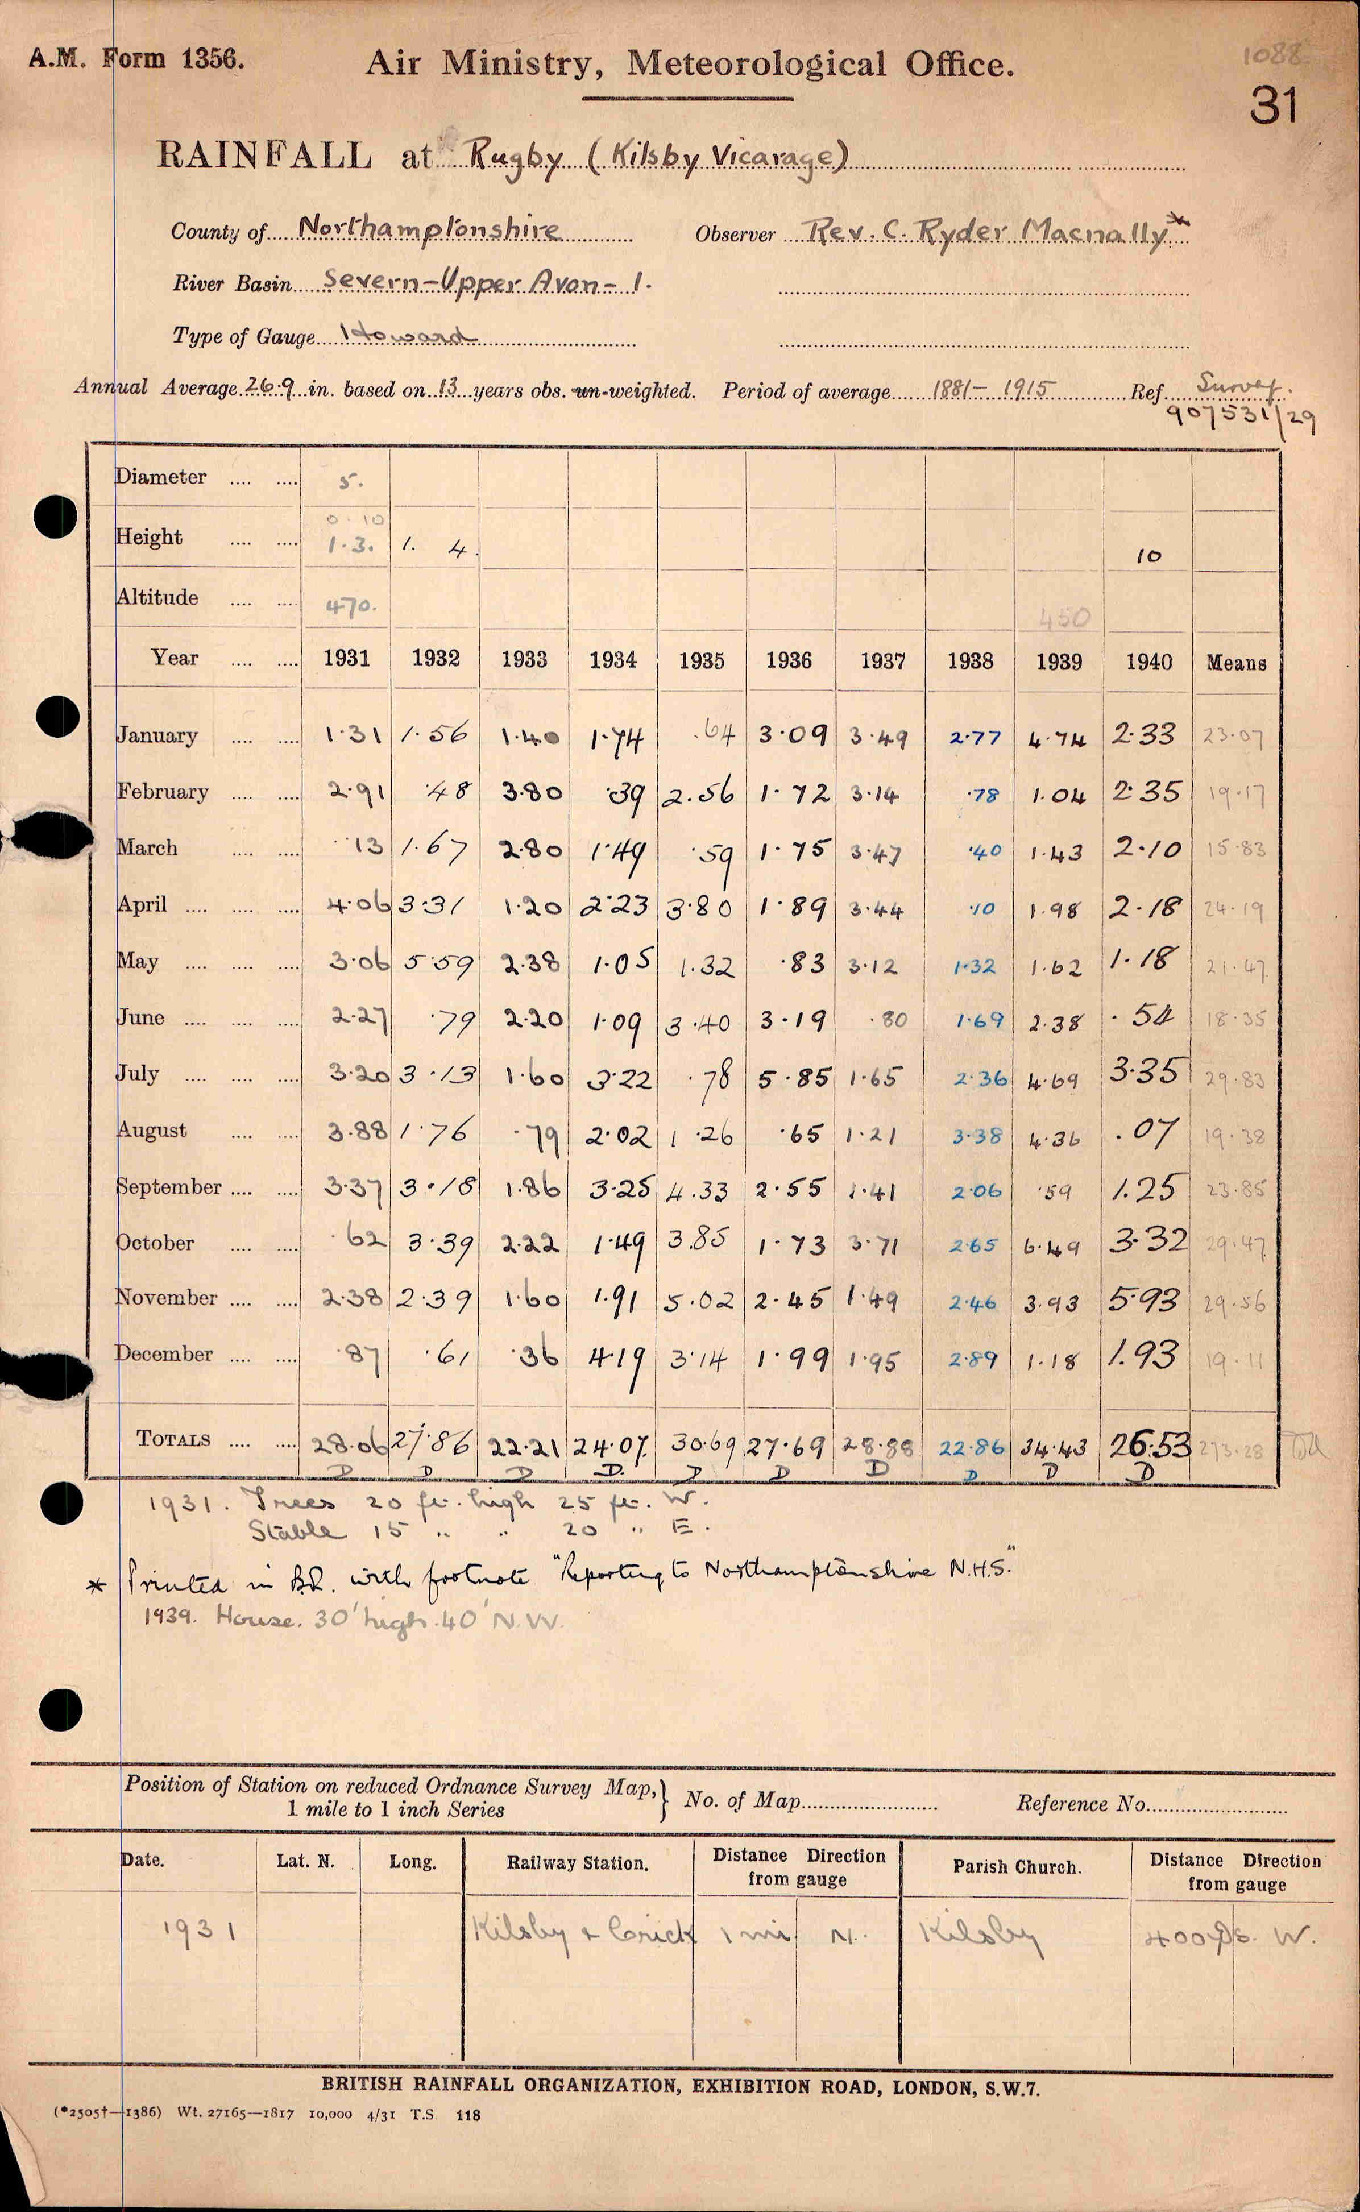 A.M. Form 1356.
Air Ministry, Meteorological Office.
1088
31
RAINFALL at Rugby (Kilsby Vicarage)
County of Northamptonshire Observer Rev. C. Ryder Macnally*
River Basin Severn-Upper Avon-1.
Type of Gauge Howard
Annual Average 26.9 in. based on 13 years obs. un-weighted. Period of average 1881-1915 Ref. Survey.
907531/29
Diameter .... .... 5.
0.10
Height .... .... 1.3. 1. 4. 10
Altitude .... .... 470. 450
Year .... .... 1931 1932 1933 1934 1935 1936 1937 1938 1939 1940 Means
January .... .... 1.31 1.56 1.40 1.74 .64 3.09 3.49 2.77 4.74 2.33 23.07
February .... .... 2.91 .48 3.80 .39 2.56 1.72 3.14 .78 1.04 2.35 19.17
March .... .... .13 1.67 2.80 1.49 .59 1.75 3.47 .40 1.43 2.10 15.83
April .... .... .... 4.06 3.31 1.20 2.23 3.80 1.89 3.44 .10 1.98 2.18 24.19
May .... .... .... 3.06 5.59 2.38 1.05 1.32 .83 3.12 1.32 1.62 1.18 21.47
June .... .... .... 2.27 .79 2.20 1.09 3.40 3.19 .80 1.69 2.38 .54 18.35
July .... .... .... 3.20 3.13 1.60 3.22 .78 5.85 1.65 2.36 4.69 3.35 29.83
August .... .... 3.88 1.76 .79 2.02 1.26 .65 1.21 3.38 4.36 .07 19.38
September .... .... 3.37 3.18 1.86 3.25 4.33 2.55 1.41 2.06 .59 1.25 23.85
October .... .... .62 3.39 2.22 1.49 3.85 1.73 3.71 2.65 6.49 3.32 29.47
November .... .... 2.38 2.39 1.60 1.91 5.02 2.45 1.49 2.46 3.93 5.93 29.56
December .... .... .87 .61 .36 4.19 3.14 1.99 1.95 2.89 1.18 1.93 19.11
TOTALS .... .... 28.06 27.86 22.21 24.07 30.69 27.69 28.88 22.86 34.43 26.53 273.28
D D D D. D D D D D D
1931. Trees 20 ft. high 25 ft. W.
Stable 15 " " 20 " E.
* Printed in B.R. with footnote "Reporting to Northamptonshire N.H.S."
1939. House. 30' high. 40' N.W.
Position of Station on reduced Ordnance Survey Map,
1 mile to 1 inch Series } No. of Map Reference No.
Date. Lat. N. Long. Railway Station. Distance Direction from gauge Parish Church. Distance Direction from gauge
1931 Kilsby + Crick 1 mi N. Kilsby 400 yds. W.
BRITISH RAINFALL ORGANIZATION, EXHIBITION ROAD, LONDON, S.W.7.
(*2505†—1386) Wt. 27165—1817 10,000 4/31 T.S 118